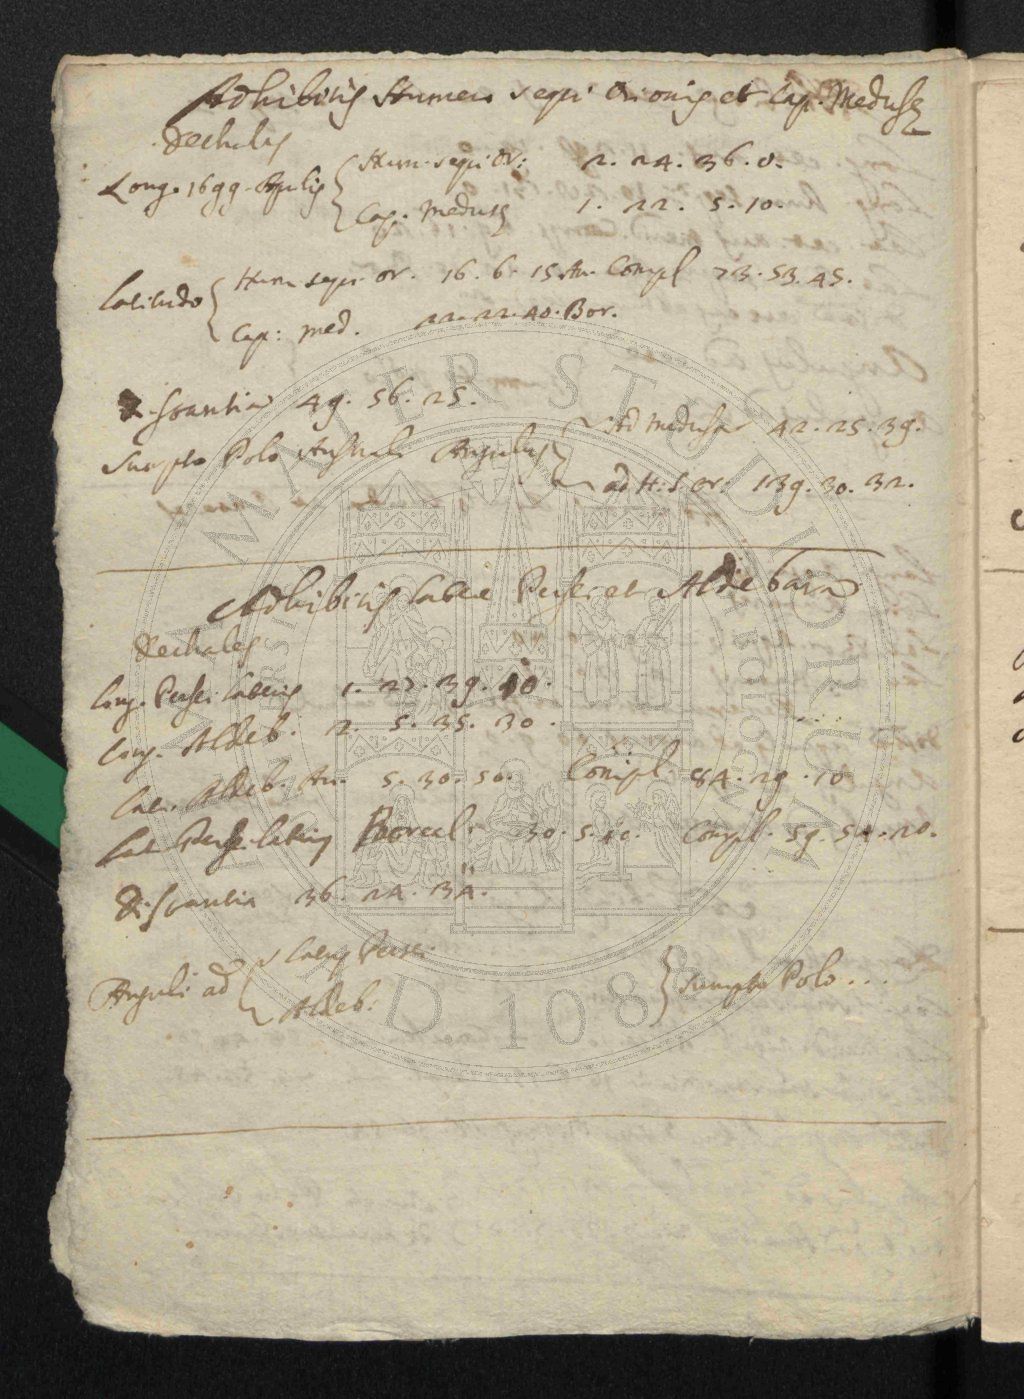 Adhibitis Humero sequi Orionis et Cap. Medusæ
Dechales
Long. 1699. Aprilis { Hum. sequi Or: 2. 24. 36. 0.
Cap. Medusæ 1. 22. 5. 10.
Latitudo { Hum sequi. or. 16. 6. 15 Au. Compl 73. 53. 45.
Cap: Med. 22. 22. 40. Bor.
Distantia 49. 56. 25.
Sumpto Polo Australi Angulus { Ad Medusæ 42. 25. 39.
ad H. S. Or. 139. 30. 32.
Adhibitis latere Persei et Aldebaran
Dechales
Long. Persei lateris 1. 27. 39. 40.
Long. Aldeb. 2. 5. 35. 30.
Lati. Aldeb. Au. 5. 30. 50. Compl. 84. 29. 10
Lat Perse. lateris Boreal. 30. 5. 40. Compl. 59. 54. 20.
Distantia 36. 24. 34.
Anguli ad { Lateris Persei
Aldeb. } sumpto Polo ...
UNIVERSITÀ DI BOLOGNA
ALMA MATER STUDIORUM
A.D. 1088